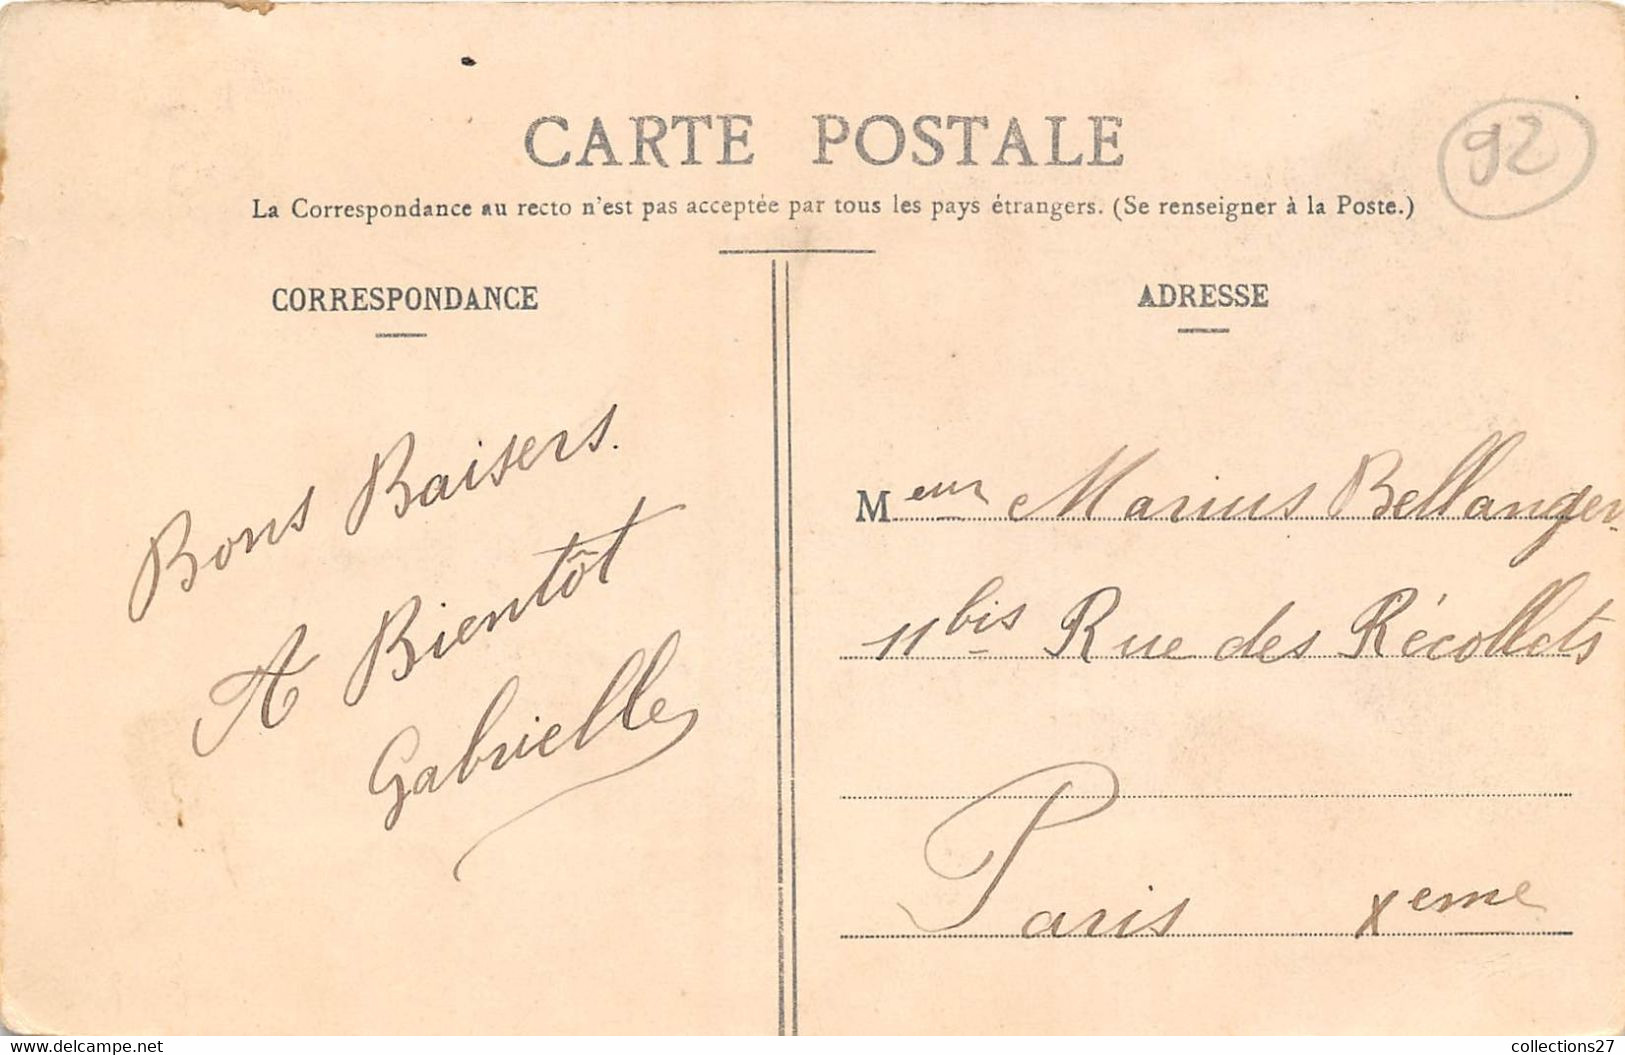 CARTE POSTALE
92
La Correspondance au recto n'est pas acceptée par tous les pays étrangers. (Se renseigner à la Poste.)
CORRESPONDANCE
Bons Baisers.
A Bientôt
Gabrielle
ADRESSE
Meur Marius Bellanger
11 bis Rue des Récollets
Paris Xeme
www.delcampe.net
collections27